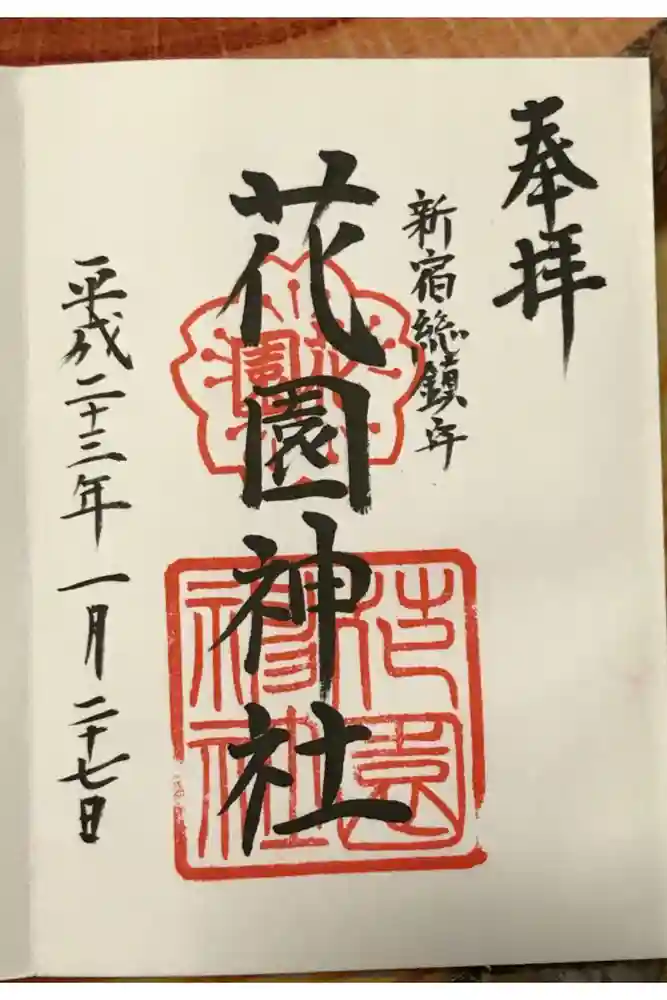 奉拝
新宿総鎮守
花園神社
平成二十三年一月二十七日
花園神社